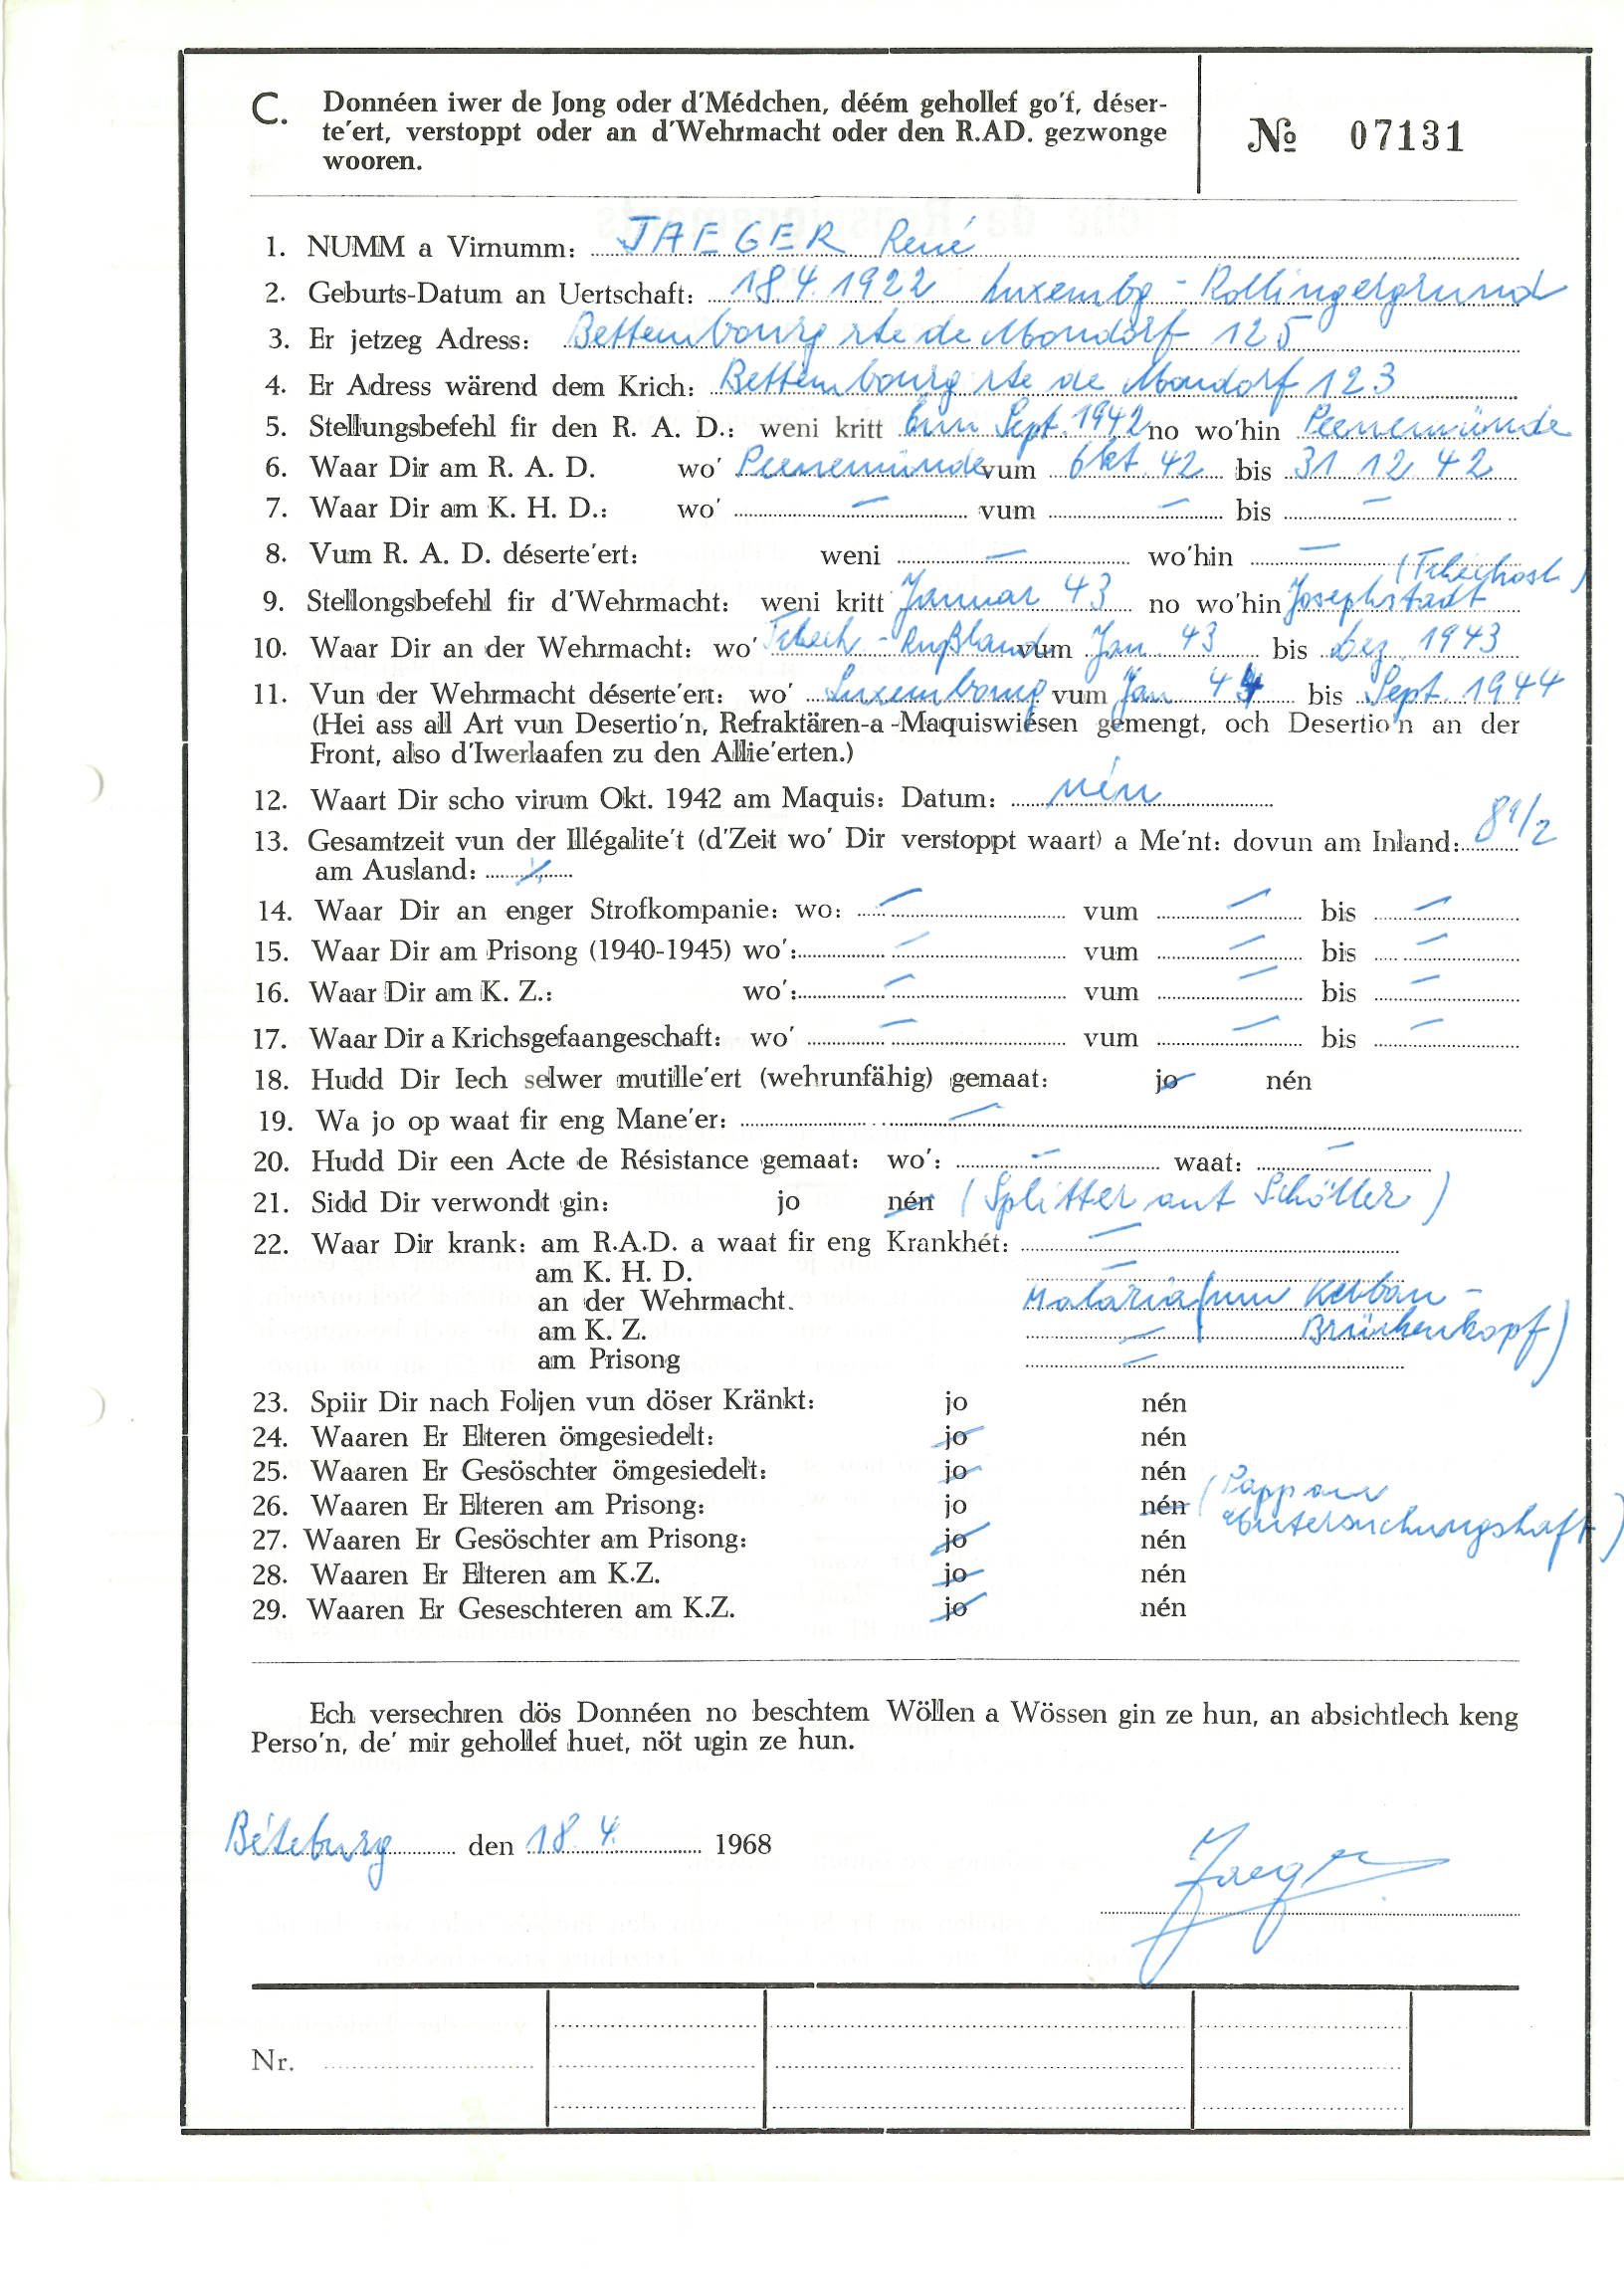 C. Donnéen iwer de Jong oder d'Médchen, déém gehollef go'f, déser-
te'ert, verstoppt oder an d'Wehrmacht oder den R.AD. gezwonge
wooren.
№ 07131
1. NUMM a Virnumm: JAEGER René
2. Geburts-Datum an Uertschaft: 18.4.1922 Luxembg - Rollingergrund
3. Er jetzeg Adress: Bettembourg rte de Mondorf 125
4. Er Adress wärend dem Krich: Bettembourg rte de Mondorf 123
5. Stellungsbefehl fir den R. A. D.: weni kritt Sept. 1942 no wo'hin Peenemünde
6. Waar Dir am R. A. D. wo' Peenemünde vum Okt. 42 bis 31.12.42
7. Waar Dir am K. H. D.: wo' — vum — bis —
8. Vum R. A. D. déserte'ert: weni — wo'hin —
9. Stellongsbefehl fir d'Wehrmacht: weni kritt Januar 43 no wo'hin Josephstadt
10. Waar Dir an der Wehrmacht: wo' Tchech - Rußland vum Jan. 43 bis Dez. 1943
11. Vun der Wehrmacht déserte'ert: wo' Luxembourg vum Jan 44 bis Sept. 1944
(Hei ass all Art vun Desertio'n, Refraktären-a -Maquiswiesen gemengt, och Desertio'n an der
Front, also d'Iwerlaafen zu den Allie'erten.)
12. Waart Dir scho virum Okt. 1942 am Maquis: Datum: nén
13. Gesamtzeit vun der Illégalite't (d'Zeit wo' Dir verstoppt waart) a Me'nt: dovun am Inland: 8 1/2
am Ausland:
14. Waar Dir an enger Strofkompanie: wo: — vum — bis —
15. Waar Dir am Prisong (1940-1945) wo': — vum — bis —
16. Waar Dir am K. Z.: wo': — vum — bis —
17. Waar Dir a Krichsgefaangeschaft: wo' — vum — bis —
18. Hudd Dir Iech selwer mutille'ert (wehrunfähig) gemaat: jo nén
19. Wa jo op waat fir eng Mane'er: —
20. Hudd Dir een Acte de Résistance gemaat: wo': — waat: —
21. Sidd Dir verwondt gin: jo nén (Splitter ant Schöller)
22. Waar Dir krank: am R.A.D. a waat fir eng Krankhét: —
am K. H. D. —
an der Wehrmacht. Malaria (vum Kubban -
am K. Z. — Brückenkopf)
am Prisong —
23. Spiir Dir nach Foljen vun döser Kränkt: jo nén
24. Waaren Er Elteren ömgesiedelt: jo nén
25. Waaren Er Gesöschter ömgesiedelt: jo nén
26. Waaren Er Elteren am Prisong: jo nén (Papp an
Untersuchungshaft)
27. Waaren Er Gesöschter am Prisong: jo nén
28. Waaren Er Elteren am K.Z. jo nén
29. Waaren Er Geseschteren am K.Z. jo nén
Ech versechren dös Donnéen no beschtem Wöllen a Wössen gin ze hun, an absichtlech keng
Perso'n, de' mir gehollef huet, nöt ugin ze hun.
Béteburg den 18.4. 1968
Jaeger
Nr.